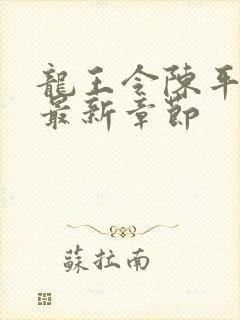 龍王令陳平
最新章節
蘇拉南